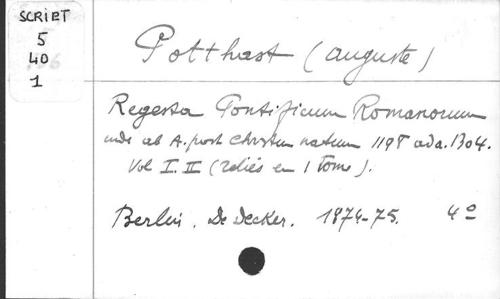 SCRIPT
5
40
1
Potthast (auguste)
Regesta Pontificum Romanorum
inde ab A. post Christum natum 1198 ad a. 1304.
Vol I. II (reliés en 1 tome).
Berlin. De Decker. 1874-75. 4º